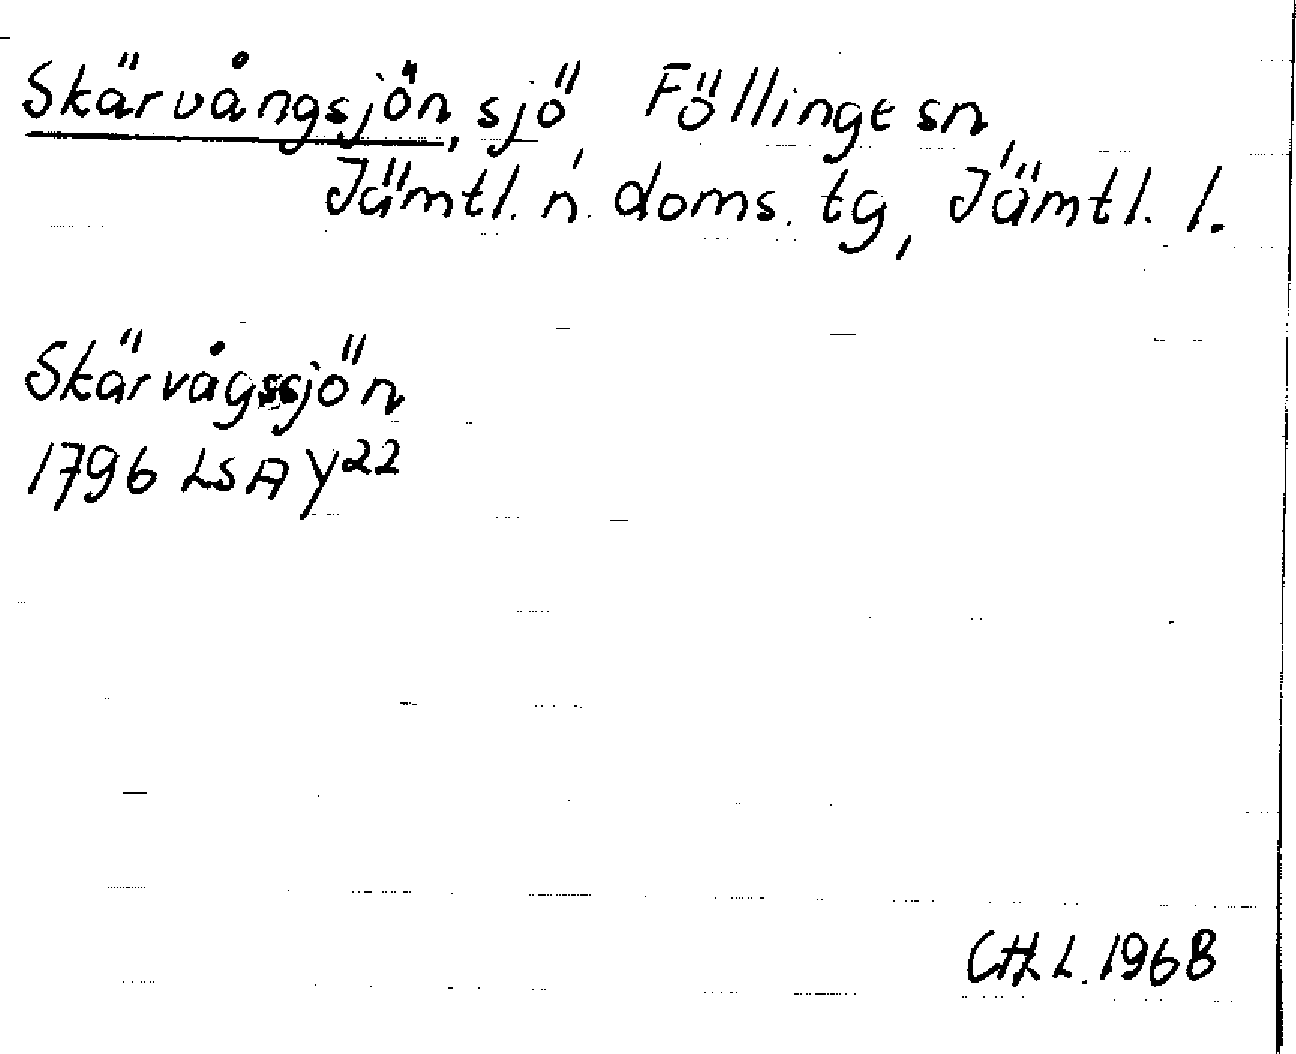 Skärvångsjön, sjö, Föllinge sn,
Jämtl. n. doms. tg, Jämtl. l.
Skärvågssjön
1796 LSA Y22
1968